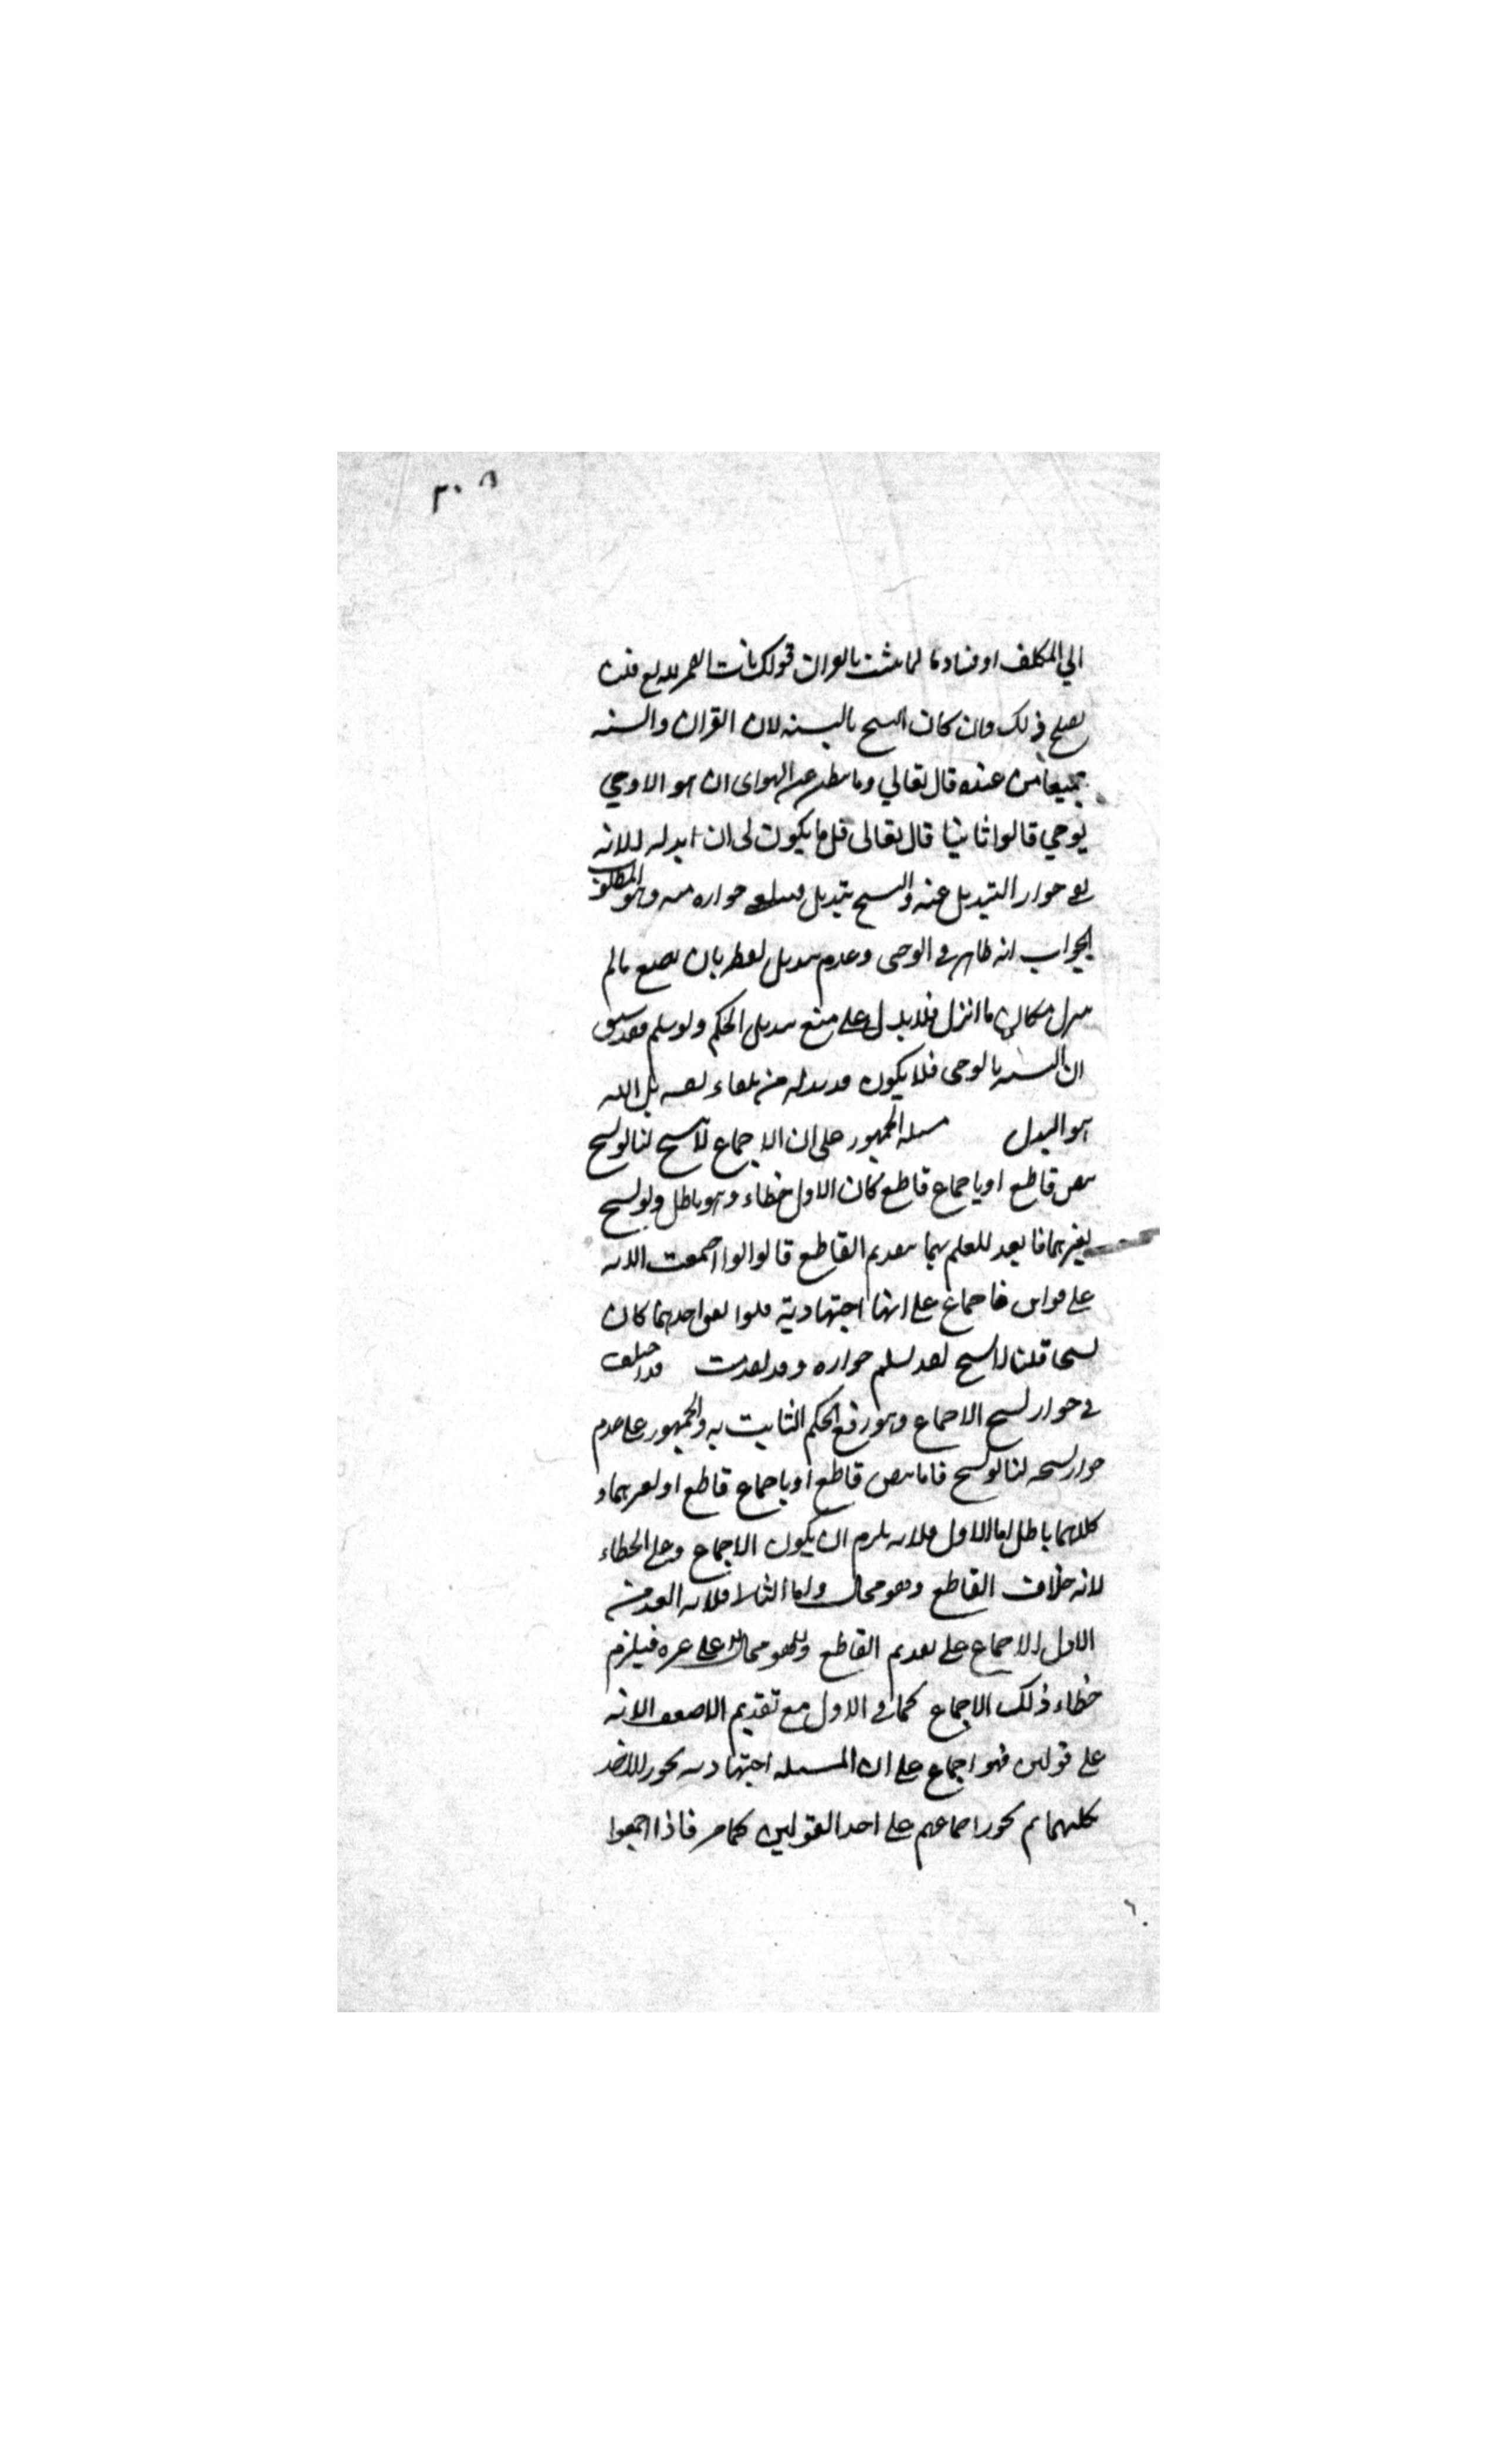 ٣٠٨
الي المكلف او مساو لما ثبت بالقران قولك نأت الضمير لله تع قلت
يصح ذلك وان كان النسخ بالسنه لان القران والسنه
جميعا من عنده قال تعالي وما ينطق عن الهواى ان هو الا وحي
يوحي قالوا ثانيا قال تعالى قل ما يكون لى ان ابدله للانه
نفى جواز التبديل عنه والنسخ تبديل جوازه منه وهو المطلوب
الجواب انه ظاهر في الوحى وعدم تبديل لفظه بان يضع مالم
ينزل مكان ما انزل فلا يدل على منع تبديل الحكم ولو سلم فقد سبق
ان السنه بالوحى فلا يكون مدبدله من تلقاء نفسه بل الله
هو المبدل مسله الجمهور على ان الاجماع لا ينسخ لنا لو نسخ
بنص قاطع او باجماع قاطع كان الاول خطاء وهو باطل ولو نسخ
بغيرهما فابعد للعلم بهما بتقديم القاطع قالوا لوا اجمعت الامه
على قولين فاجماع على انها اجتهادية فلوا اتفق احدهما كان
نسخا قلنا لا نسخ بعد تسليم جوازه وقد تقدمت قد اختلف
في جواز نسخ الاجماع وهو رفع الحكم الثابت به والجمهور على عدم
جواز نسخه لنا لو نسخ فاما بنص قاطع او باجماع قاطع او بغيرهما و
كلاهما باطل اما الاول فلانه يلزم ان يكون الاجماع على الخطاء
لانه خلاف القاطع وهو محال واما الثا فلانه ابعد من
الاول للاجماع على تقديم القاطع وهو محال على غيره فيلزم
خطاء ذلك الاجماع كما في الاول مع تقديم الاضعف الانه
على قولين فهو اجماع على ان المسله اجتهاديه يجوز للاخذ
بكليهما ثم يجوز اجماعهم على احد القولين كما مر فاذا اجمعوا